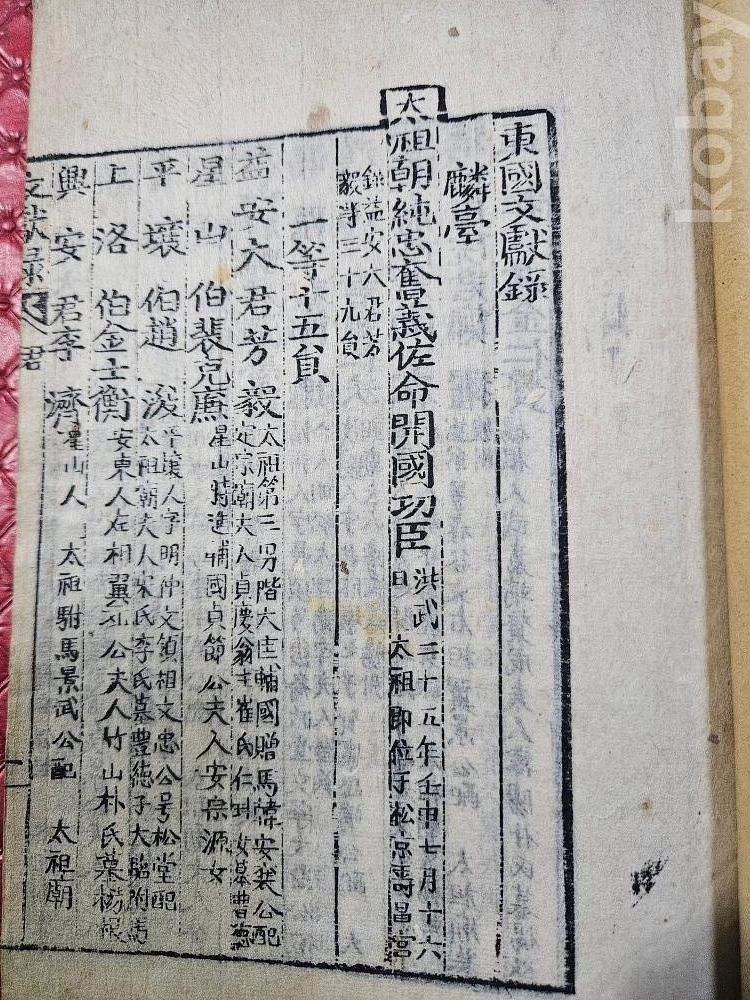 東國文獻錄
麟臺
太祖朝純忠奮義佐命開國功臣
洪武二十五年壬申七月十六
日 太祖即位于松京壽昌宮
錄益安大君芳
毅等三十九員
一等十五員
益安大君芳毅
太祖第三男階大匡輔國贈馬韓安襄公配
定宗廟夫人貞慶翁主崔氏仁㺶女墓豊德
星山伯裵克廉
星山特進補國貞節公夫人安宗源女
平壤伯趙浚
平壤人字明仲文領相文忠公号松堂配
太祖廟夫人宋氏李氏墓豊德子大臨附馬
上洛伯金士衡
安東人左相翼元公夫人竹山朴氏墓楊根
興安君李濟
星山人 太祖駙馬景武公配 太祖朝
文獻錄
君
一
kobay